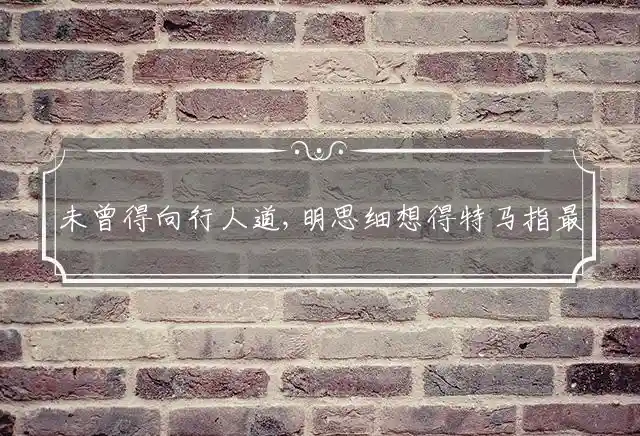 未曾得向行人道,明思细想得特马指最